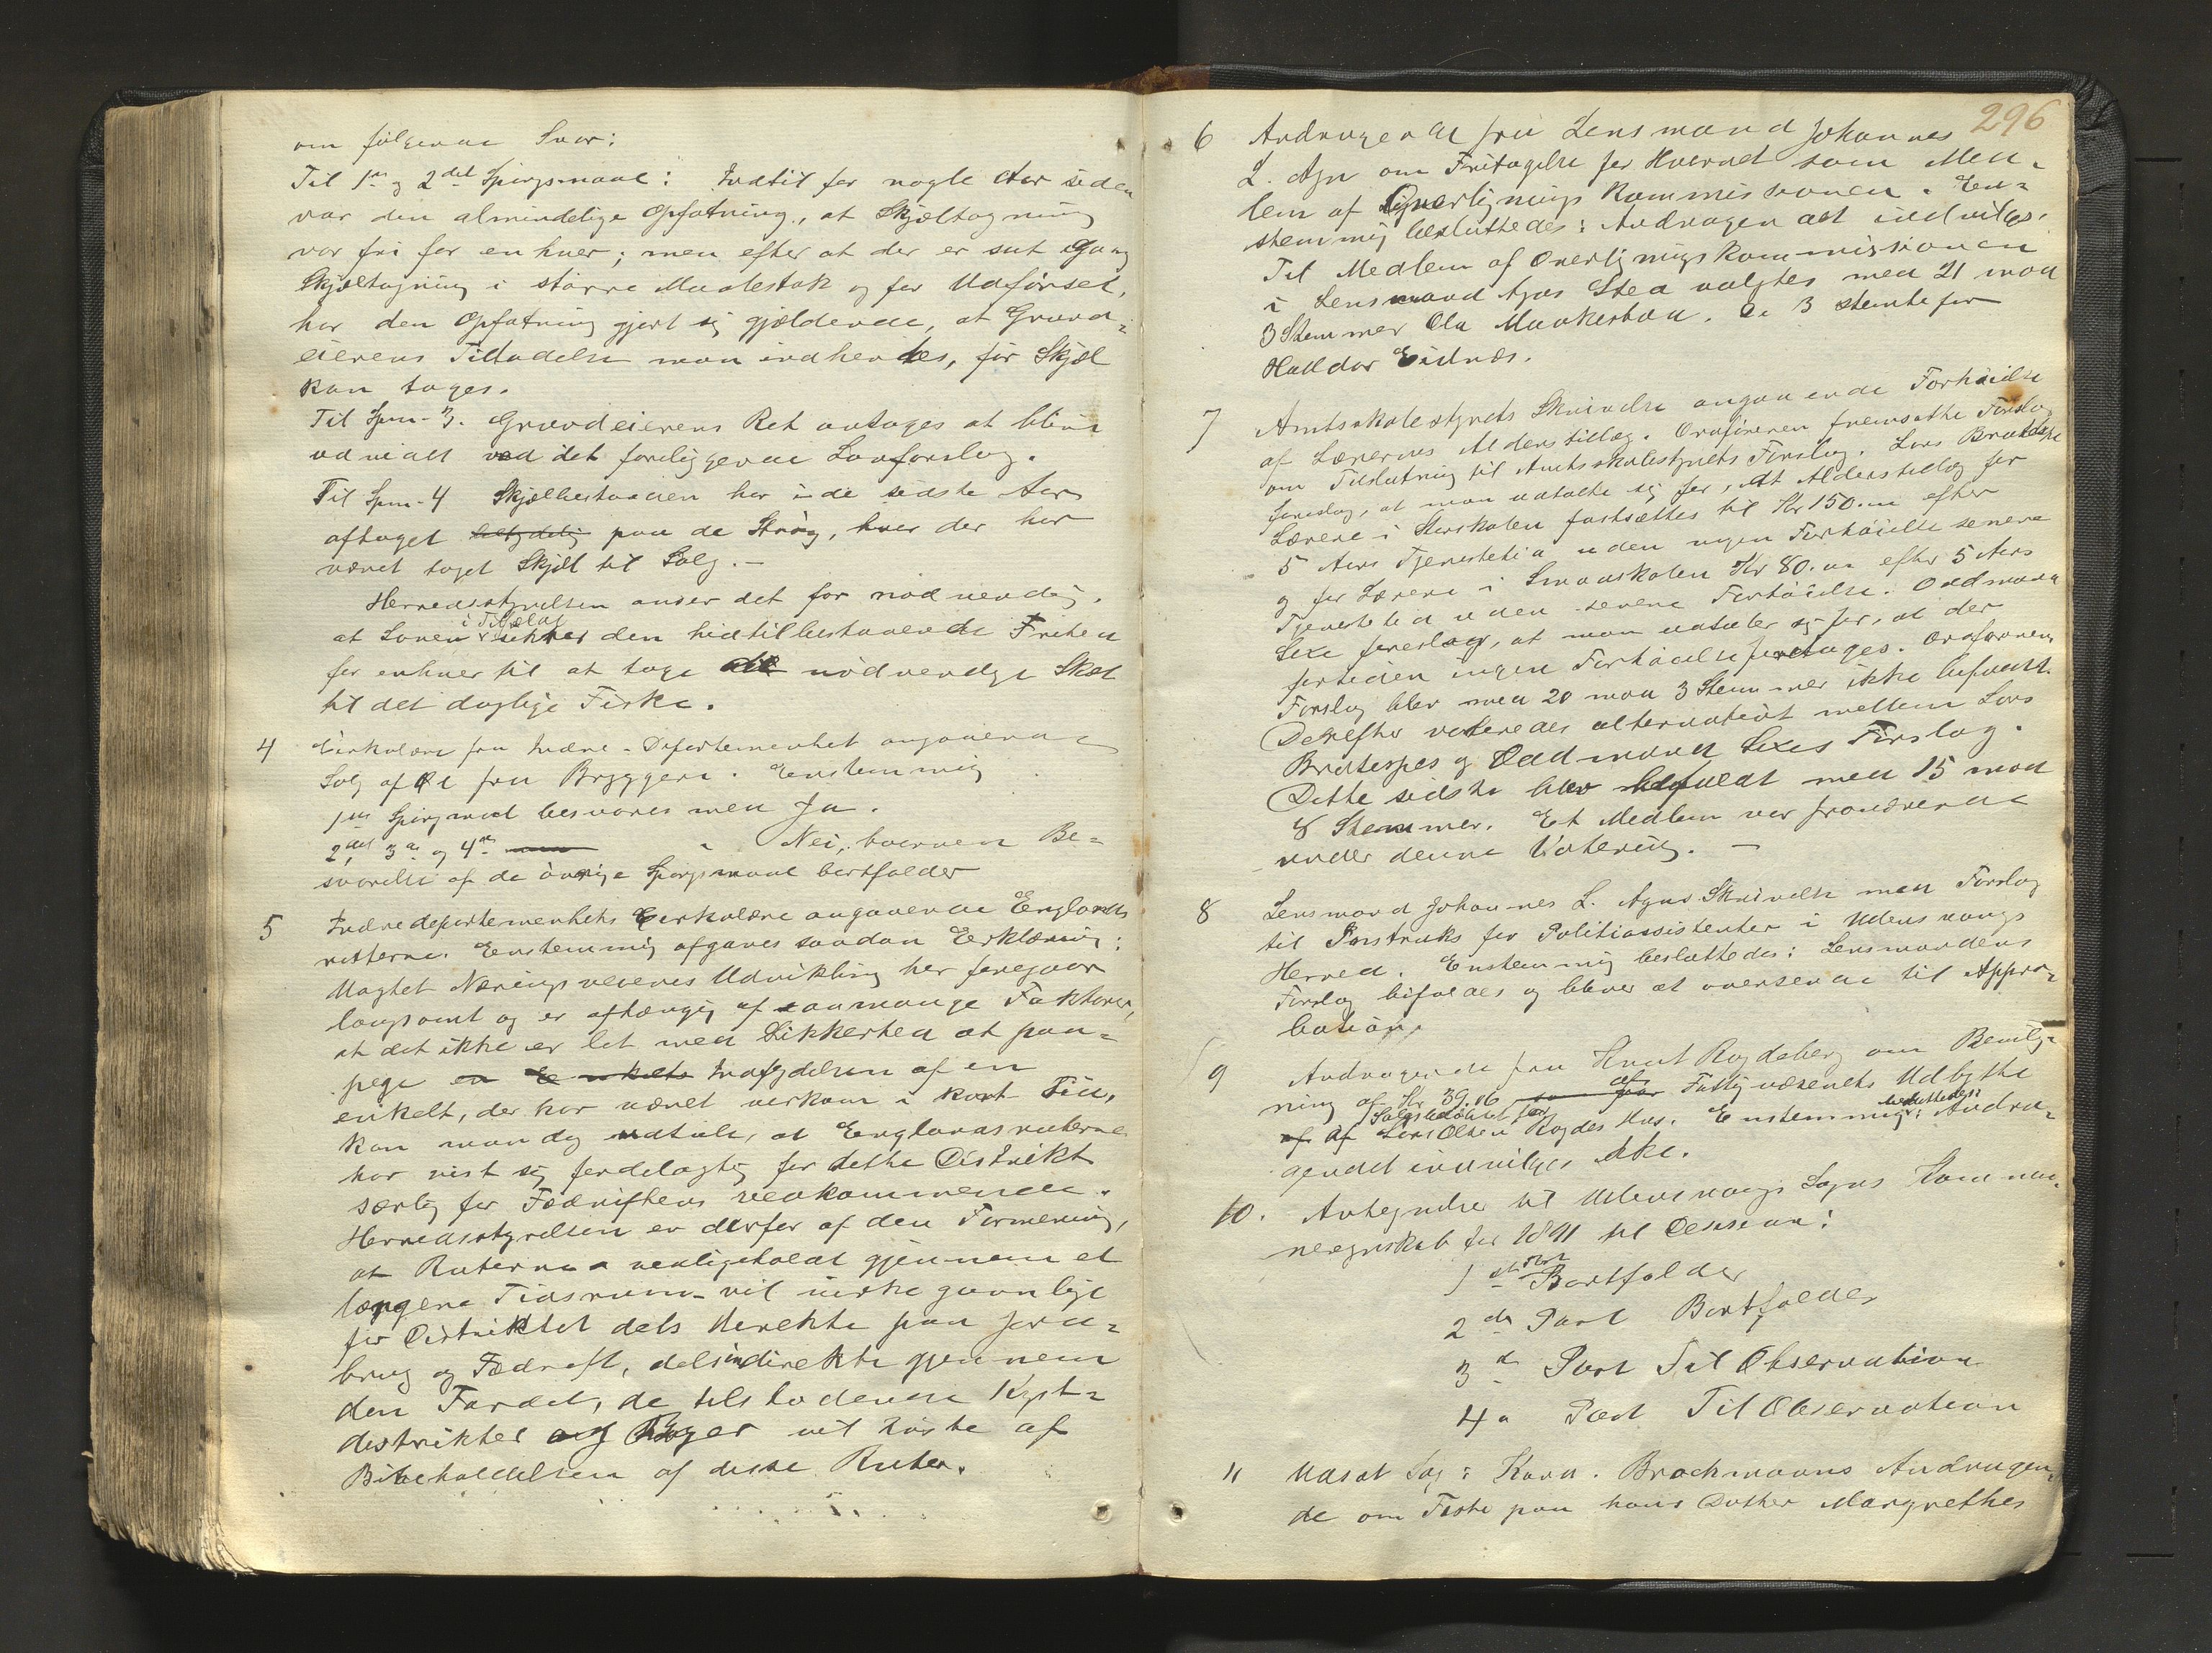 om følgende Svar:
Til 1ste og 2det Spørgsmaal: Indtil for nogle Aar siden
var den almindelige Opfatning, at Skjæltagning
var fri for enhver; men efter at der er sat igang
Skjæltagning i større Maalestok og for Udførsel,
har den Opfatning gjort sig gjældende, at Grund-
eierens Tilladelse maa indhentes, før Skjæl
kan tages.
Til Spm. 3. Grundeierens Ret antages at blive
udvidet ved det foreliggende Lovforslag.
Til Spm. 4 Skjælbestanden har i de sidste Aar
aftaget betydelig paa de Strøg, hvor der har
været taget Skjæl til Salg. —
Herredsstyrelsen anser det for nødvendig,
at Loven i Tilfælde sikrer den hidtil bestaaende Frihed
for enhver til at tage det nødvendige Skæl
til det daglige Fiske.
4 Cirkulære fra Indre-Departementet angaaende
Salg af Øl fra Bryggeri. Enstemmig
1ste Spørgsmaal besvares med Ja.
2det, 3die og 4de " Nei, hvorved Be-
svarelse af de øvrige Spørgsmaal bortfalder
5 Indredepartementets Cirkulære angaaende Englands
ruterne. Enstemmig afgaves saadan Erklæring:
Uagtet Næringsveienes Udvikling her foregaar
langsomt og er afhængig af saa mange Faktorer,
at det ikke er let med Sikkerhed at paa-
pege en Enkelts Indflydelsen af en
enkelt, der har været virksom i kort Tid,
kan man dog udtale, at Englandsruterne
har vist sig fordelagtig for dette Distrikt
særlig for Fædriftens vedkommende.
Herredsstyrelsen er derfor af den Formening,
at Ruterne vedligeholdt gjennem et
længere Tidsrum vil virke gavnlige
for Distriktet dels direkte paa Jord-
brug og Fædrift, dels indirekte gjennem
den Fordel, de tilstødende Kyst-
distrikter og Byer vil høste af
Bibeholdelsen af disse Ruter.
296
6 Andragende fra Lensmand Johannes
L. Aga om Fritagelse for Hvervet som Med-
lem af Overlignings Kommissionen. En-
stemmig besluttedes: Andragendet indvilges.
Til Medlem af Overligningskommissionen
i Lensmand Agas Sted valgtes med 21 mod
3 Stemmer Ola Maakestad. De 3 stemte for
Halldor Eidnæs.
7 Amtsskolestyrets Skrivelse angaaende Forhøielse
af Lærernes Alderstillæg. Ordføreren fremsatte Forslag
om Tilslutning til Amtsskolestyrets Forslag. Lars Bratespe
foreslog, at man udtalte sig for, at Alderstillæg for
Lærere i Storskolen fastsættes til Kr 150.00 efter
5 Aars Tjenestetid uden nogen Forhøielse senere
og for Lærere i Smaaskolen Kr 80.00 efter 5 Aars
Tjenestetid uden senere Forhøielse. Oddmund
Sexe foreslog, at man udtaler sig for, at der
fortiden ingen Forhøielse foretages. Ordførerens
Forslag blev med 20 mod 3 Stemmer ikke bifaldt.
Derefter voteredes alternativt mellem Lars
Bratespes og Oddmund Sexes Forslag.
Dette sidste blev bifaldt med 15 mod
8 Stemmer. Et Medlem var fraværende
under denne Votering. —
8 Lensmand Johannes L. Agas Skrivelse med Forslag
til Instruks for Politiassistenter i Ullensvangs
Herred. Enstemmig besluttedes: Lensmandens
Forslag bifaldes og bliver at oversende til Appro-
bation.
9 Andragende fra Knut Rogdeberg om Bevilg-
ning af Kr 39.06 som for af Fattigvæsenets Udbytte
af Salgsbeløbet for Lars Olsen Rogdes Hus. Enstemmig besluttedes: Andra-
gendet indvilges ikke.
10. Antegnelser til Ullensvangs Sogns Kommu-
neregnskab for 1891 til Decision:
1ste Post Bortfalder
2den Post Bortfalder
3die Post Til Observation
4de Post Til Observation
11 Udsat Sag: Kand. Brochmanns Andragen-
de om Feste paa hans Datter Margrethes